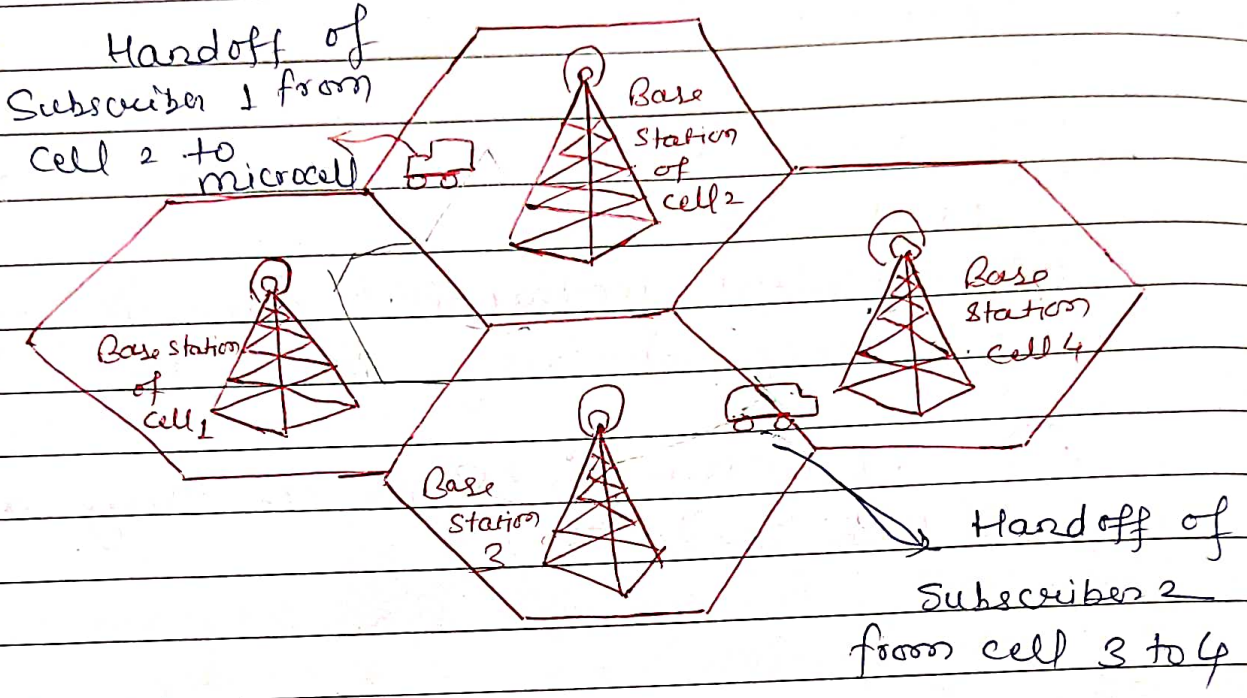 Handoff of
Subscriber 1 from
Cell 2 to
microcell
Base
Station
of
cell 2
Base station
of
cell 1
Base
Station
cell 4
Base
Station
3
Handoff of
Subscriber 2
from cell 3 to 4